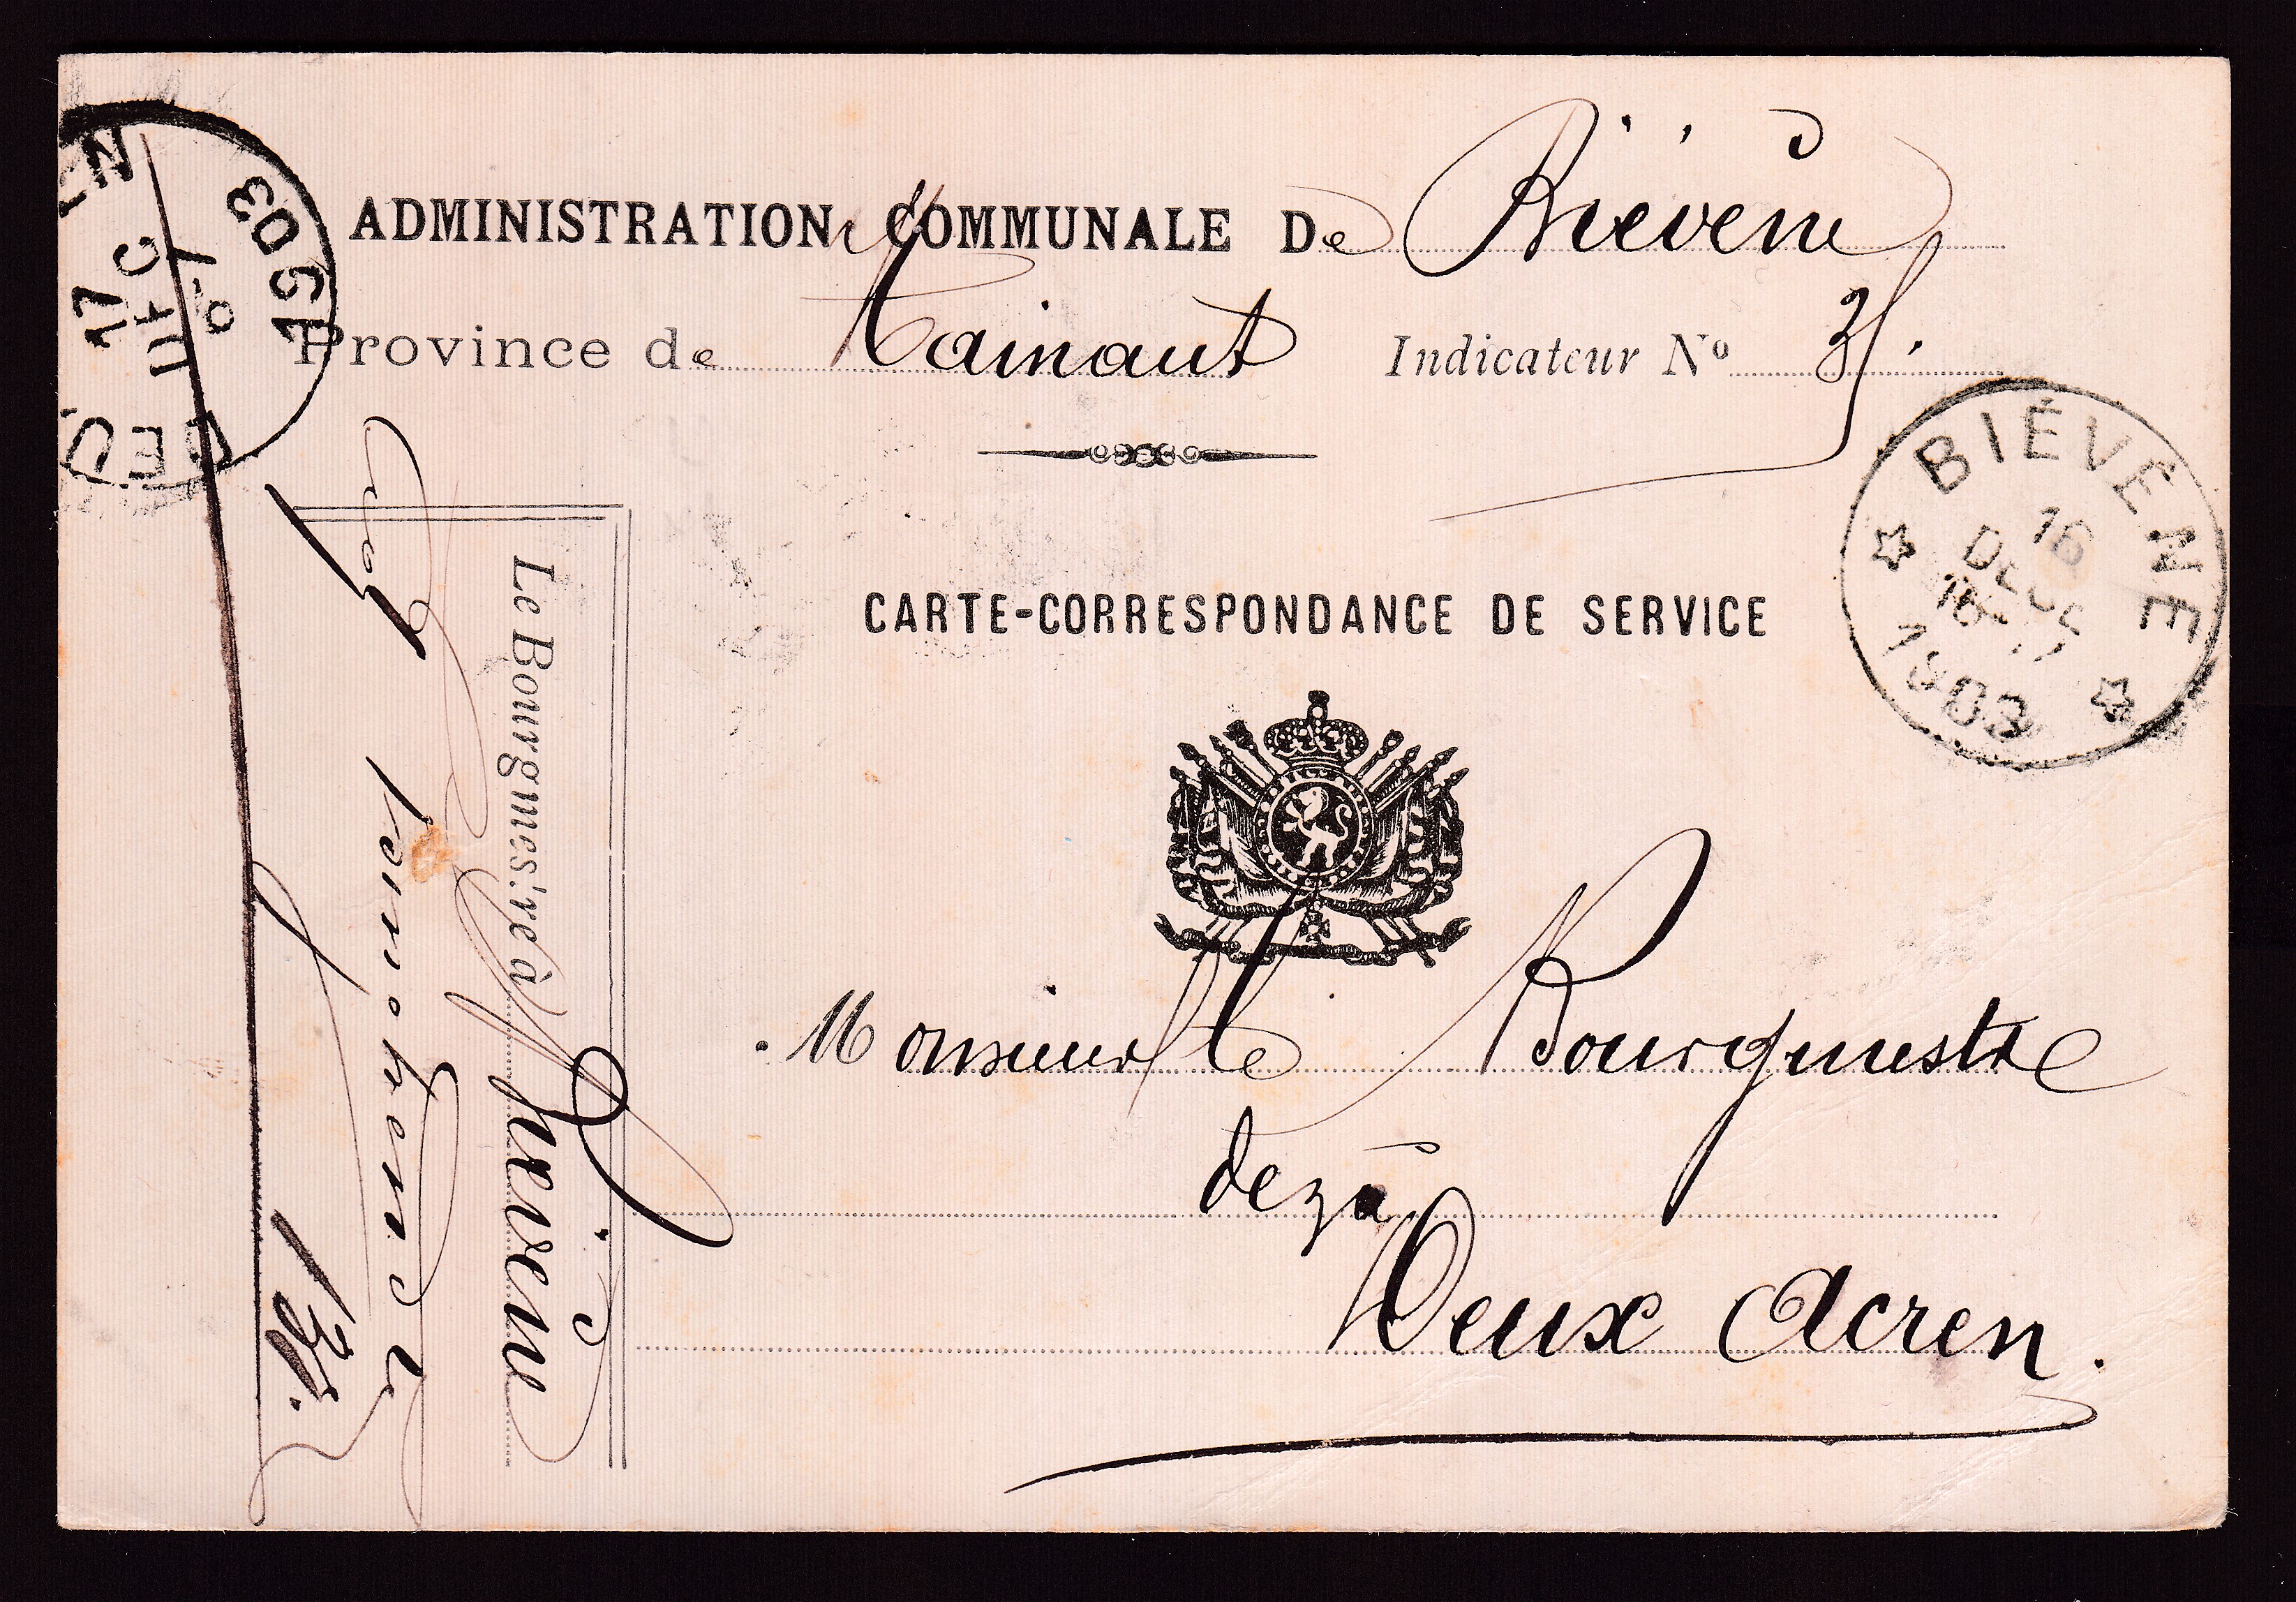 ADMINISTRATION COMMUNALE De Biévène
Province de Hainaut Indicateur Nº 31.
CARTE-CORRESPONDANCE DE SERVICE
BIÉVÈNE
16
DÉCE
16-17
1903
Monsieur le Bourgmestre
de & à
Deux Acren.
Le Bourgmestre à Biévène
17
DEC
1903
DEU
EN